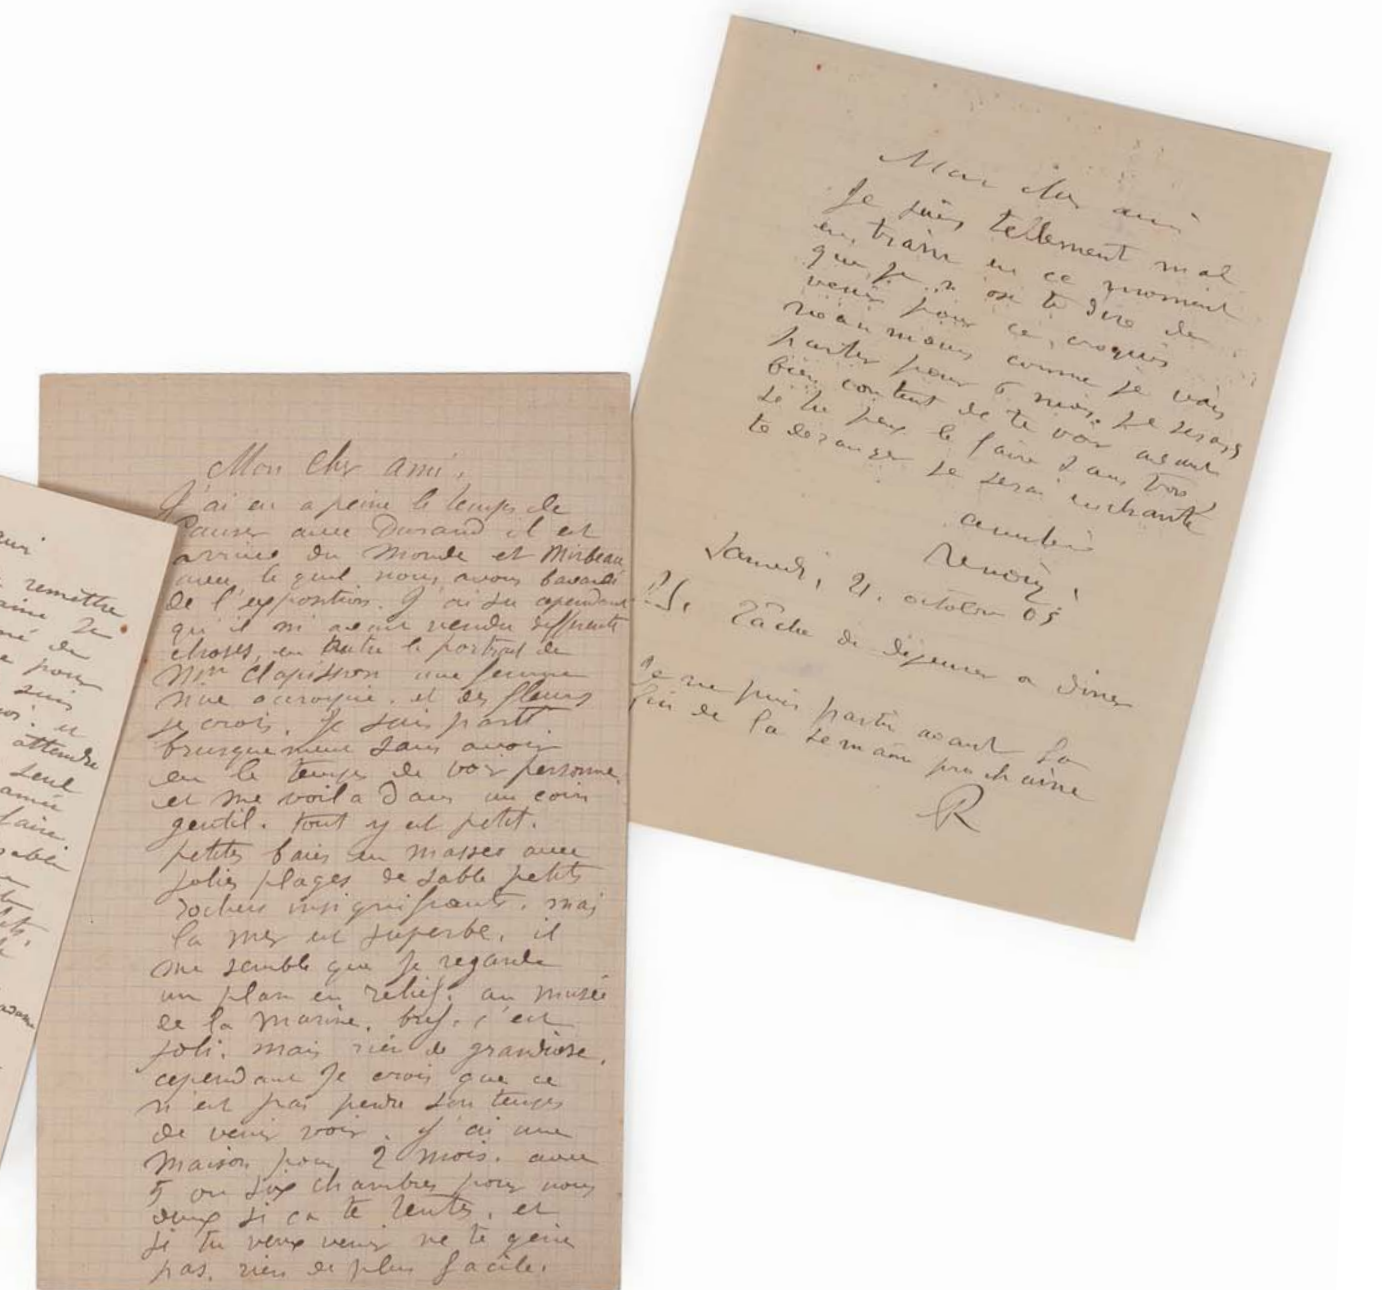 remettre
de
pour
suis
et
attendre
seul
faire
Mon cher ami,
J'ai eu a peine le temps de
Causer avec Durand il est
arrivé du Monde et Mirbeau
avec le quel nous avons bavardé
de l'exposition. J'ai su cependant
qu'il m'avait vendu differente
choses, en outre le portrait de
Mme Clapisson une femme
nue accroupie. et des fleurs
je crois. Je suis parti
brusquement sans avoir
eu le temps de voir personne.
et me voila dans un coin
gentil. tout y est petit.
petites baies en masses avec
jolies plages de sable petits
rochers insignifiants. mais
la mer est superbe. il
me semble que je regarde
un plan en relief. au musée
de la marine. bref. c'est
joli. mais rien de grandiose.
cependant je crois que ce
n'est pas perdre son temps
de venir voir. j'ai une
maison pour 2 mois. avec
5 ou six chambres pour nous
deux si ca te tente. et
si tu veux venir ne te gene
pas. rien de plus facile.
Mon cher ami
Je suis tellement mal
en train en ce moment
que je n'ose te dire de
venir pour ce croquis
néanmoins comme je vais
partir pour 6 mois. je serais
bien content de te voir avant
si tu peux le faire sans trop
te deranger je serai enchanté
amitié
Renoir
Samedi, 21. octobre 05
P.S. tâche de dejeuner a diner
Je ne puis partir avant la
fin de la semaine prochaine
R